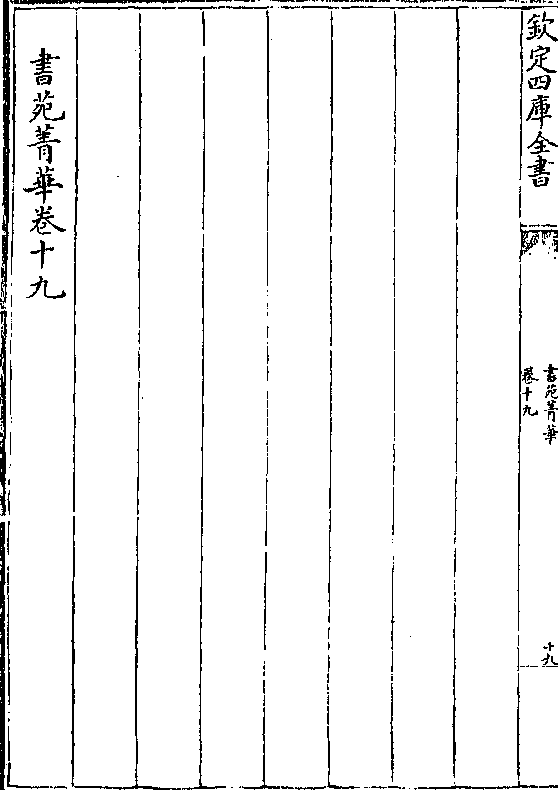 欽定四庫全書
書苑菁華
卷十九
十九
書苑菁華卷十九